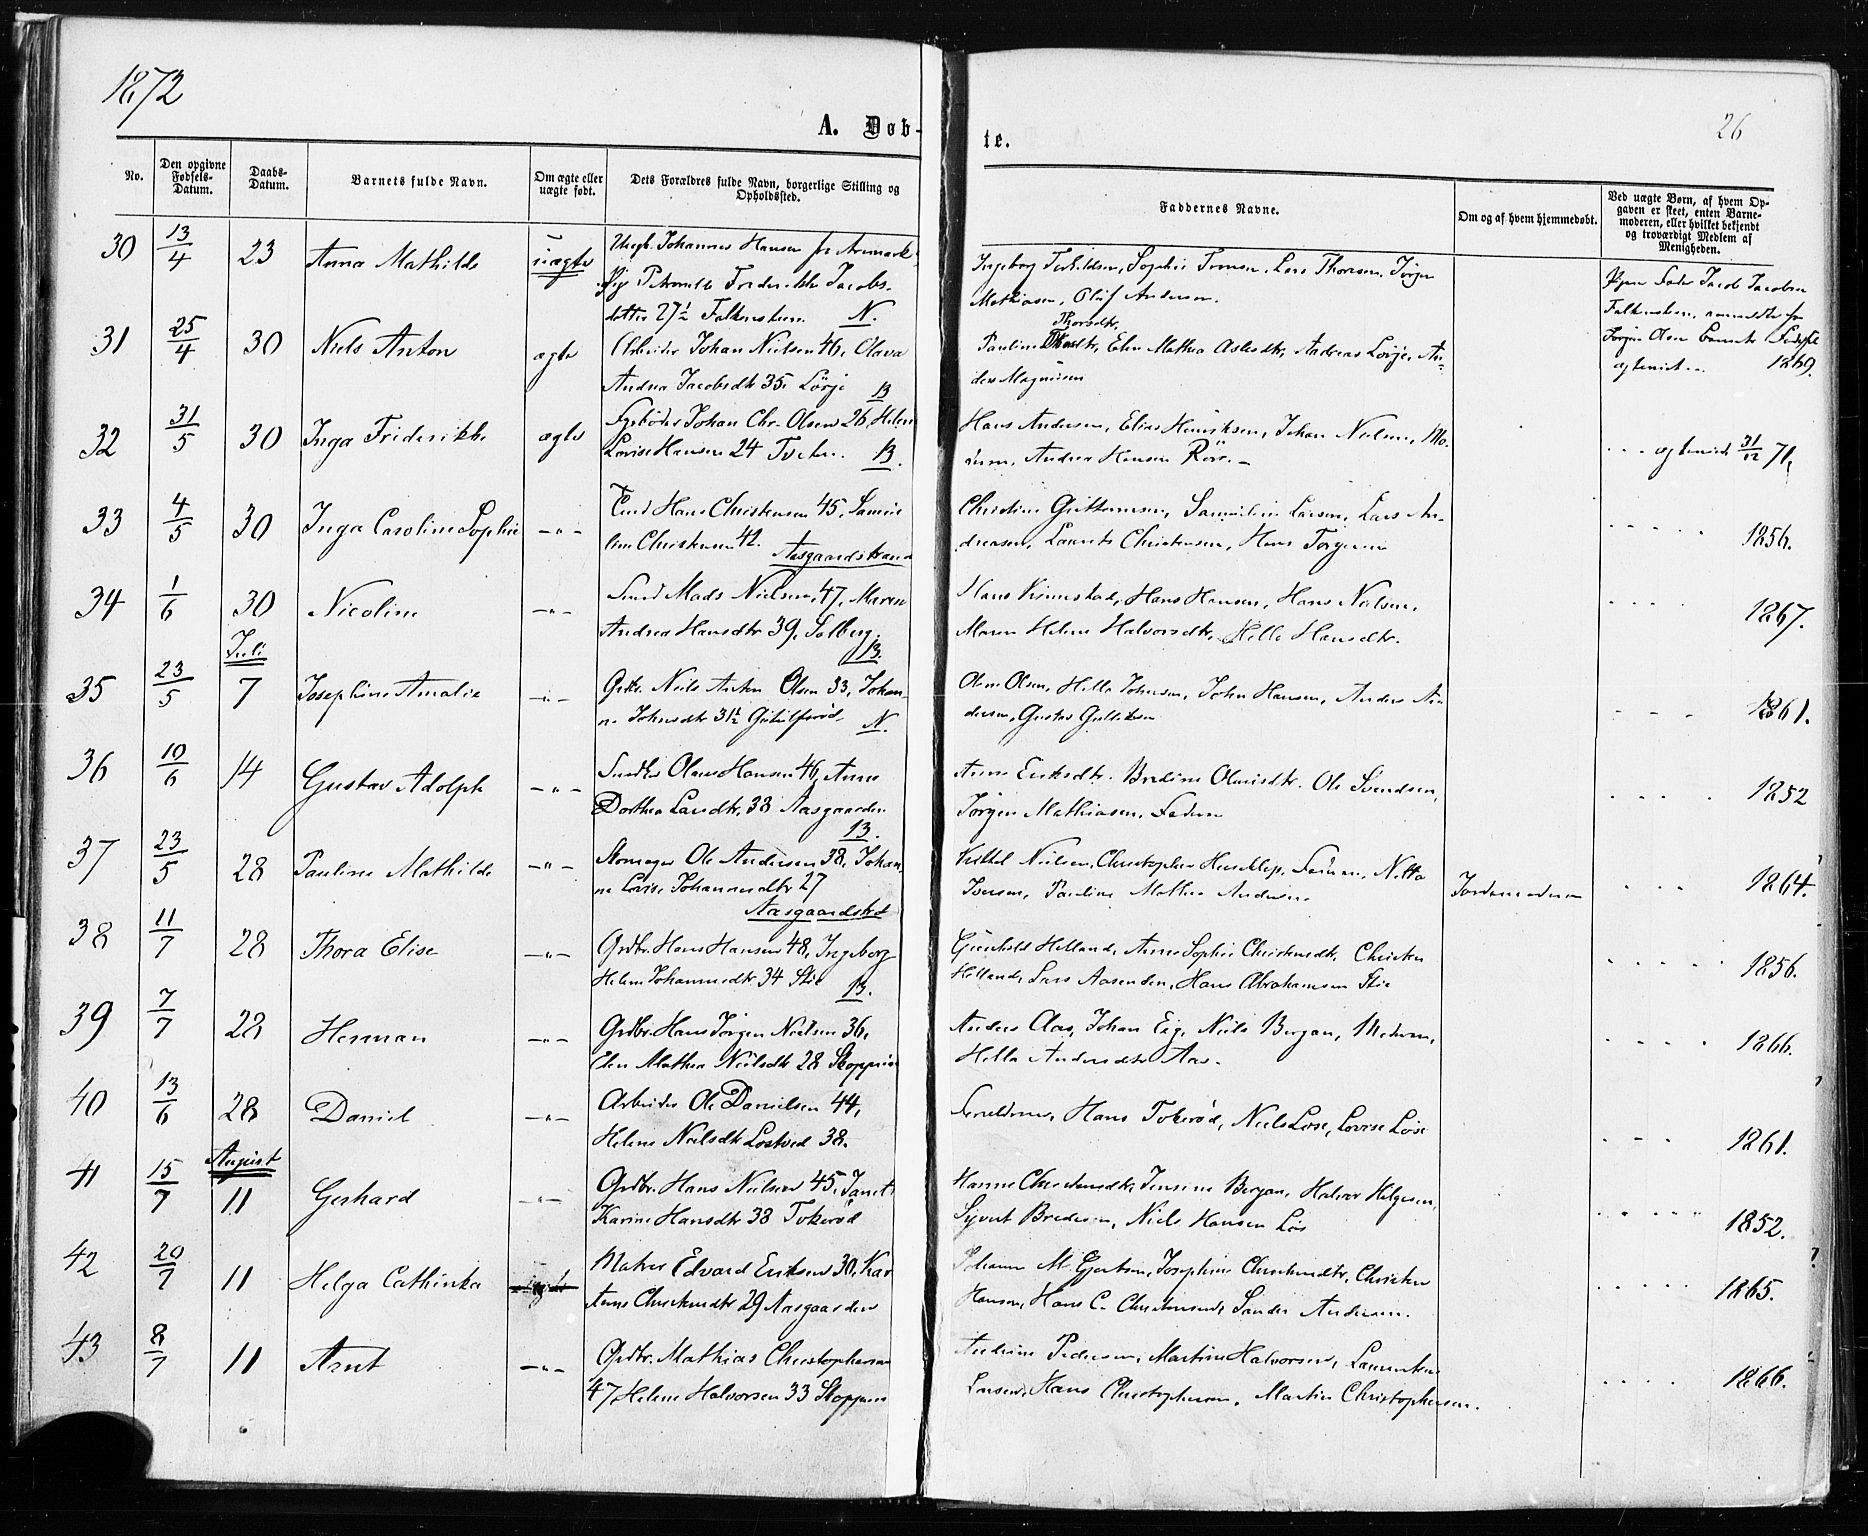 1872
26
A. Døb-
te.
No.
Den opgivne Fødsels-Datum.
Daabs-Datum.
Barnets fulde Navn.
Om ægte eller uægte født.
Dets Forældres fulde Navn, borgerlige Stilling og Opholdssted.
Faddernes Navne.
Om og af hvem hjemmedøbt.
Ved uægte Børn, af hvem Opgaven er skeet, enten Barnemoderen, eller hvilket bekjendt og troværdigt Medlem af Menigheden.
30 13/4 23 Anna Mathilde uægte Johannes Hansen fr Aremark
Pige Petronelle Frederikke Jacobs-
datter 27½ Falkensteen N.
Sophie Lars Thoresen, Jørgen
Mathiasen, Oluf Andersen.
Pigens Fader Jacob Jacobsen
Falkensteen, anmeldte
Jørgen Olsen
1869.
31 25/4 30 Niels Anton ægte Arbeider Johan Nielsen 46, Olava
Andrea Jacobsdtr 35, Lørje B
Thorsdtr.
Pauline Elen Mathea Aslesdtr, Andreas Lørje, An-
ders Magnusen
32 31/5 30 Inga Friderikke ægte Johan Chr. Olsen 26, Helene
Lovise Hansen 24 B.
Hans Andersen, Elias Henriksen, Johan Nielsen, Mo-
deren, Andrea Hansen Rør. –
ægteviet 31/12 71,
33 4/5 30 Inga Caroline Sophie – " – Hans Christensen 45, Samui-
line Christensen 42. Aasgaardstrand
Christine Guttormsen, Samueline Larsen, Lars An-
dreasen, Laurits Christensen, Hans Torgersen
1856.
34 1/6 30 Nicoline – " – Smed Mads Nielsen, 47, Maren
Andrea Hansdtr 39, Solberg. B.
Hans Kinnestad, Hans Hansen, Hans Nielsen,
Maren Helene Halvorsdtr, Helle Hansdtr.
1867.
Juli
35 23/5 7 Josephine Amalie – " – Grdbr. Niels Anton Olsen 33, Johan-
ne Johnsdtr 31½ N.
Olsen, Helle Johnsen, John Hansen, Anders An-
dersen, Gustav Gulliksen
1861.
36 10/6 14 Gustav Adolph – " – Olaus Hansen 46, Anne
Dorthea Larsdtr, 38 Aasgaarden B.
Anne Eriksdtr. Bredine Ole Svendsen,
Jørgen Mathiasen, Faderen
1852
37 23/5 28 Pauline Mathilde – " – Skomager Ole Andersen 38, Johan-
ne Lovise Johannesdtr 27
Aasgaardstrd
Kittel Nielsen, Christopher Faderen, Netta
Iversen, Pauline Mathea Andersen
Jordemoderen
1864.
38 11/7 28 Thora Elise – " – Grdbr. Hans Hansen 48, Ingeborg
Helene Johannesdtr 34 Stie B.
Gunhild Helland, Anne Sophie Christensdtr, Christen
Helland, Lars Aasenden, Hans Abrahamsen Stie
1856.
39 7/7 28 Herman – " – Grdbr. Hans Jørgen Nielsen 36,
Elen Mathea Nielsdtr 28 Skoppum
Anders Aas, Johan Eeg, Niels Bergan, Moderen,
Helle Andersdtr Aas.
1866.
40 13/6 28 Daniel – " – Arbeider Ole Danielsen 44,
Helene Nielsdtr 38.
Forældrene, Hans Tokerød, Niels Løse, Lovise Løse
1861.
August
41 15/7 11 Gerhard – " – Grdbr. Hans Nielsen 45, Janet
Karine Hansdtr 38 Tokerød
Hanne Christensdtr, Jensine Bergan, Halvor Helgesen,
Syvert Bredesen, Niels Hansen Løs
1852.
42 20/7 11 Helga Cathinka Matros Edvard Eriksen 30, Kar
Anne Christensdtr 29 Aasgaarden
Johanne M. Gjertsen, Josephine Christensdtr, Christen
Hansen, Hans C. Christensen, Sander Andersen.
1865.
43 8/7 11 Arnt – " – Grdbr. Mathias Christophersen
47, Helene Halvorsen 33 Skoppum
Andrine Pedersen, Martine Halvorsen, Laurentius
Larsen, Hans Christophersen, Martin Christophersen.
1866.